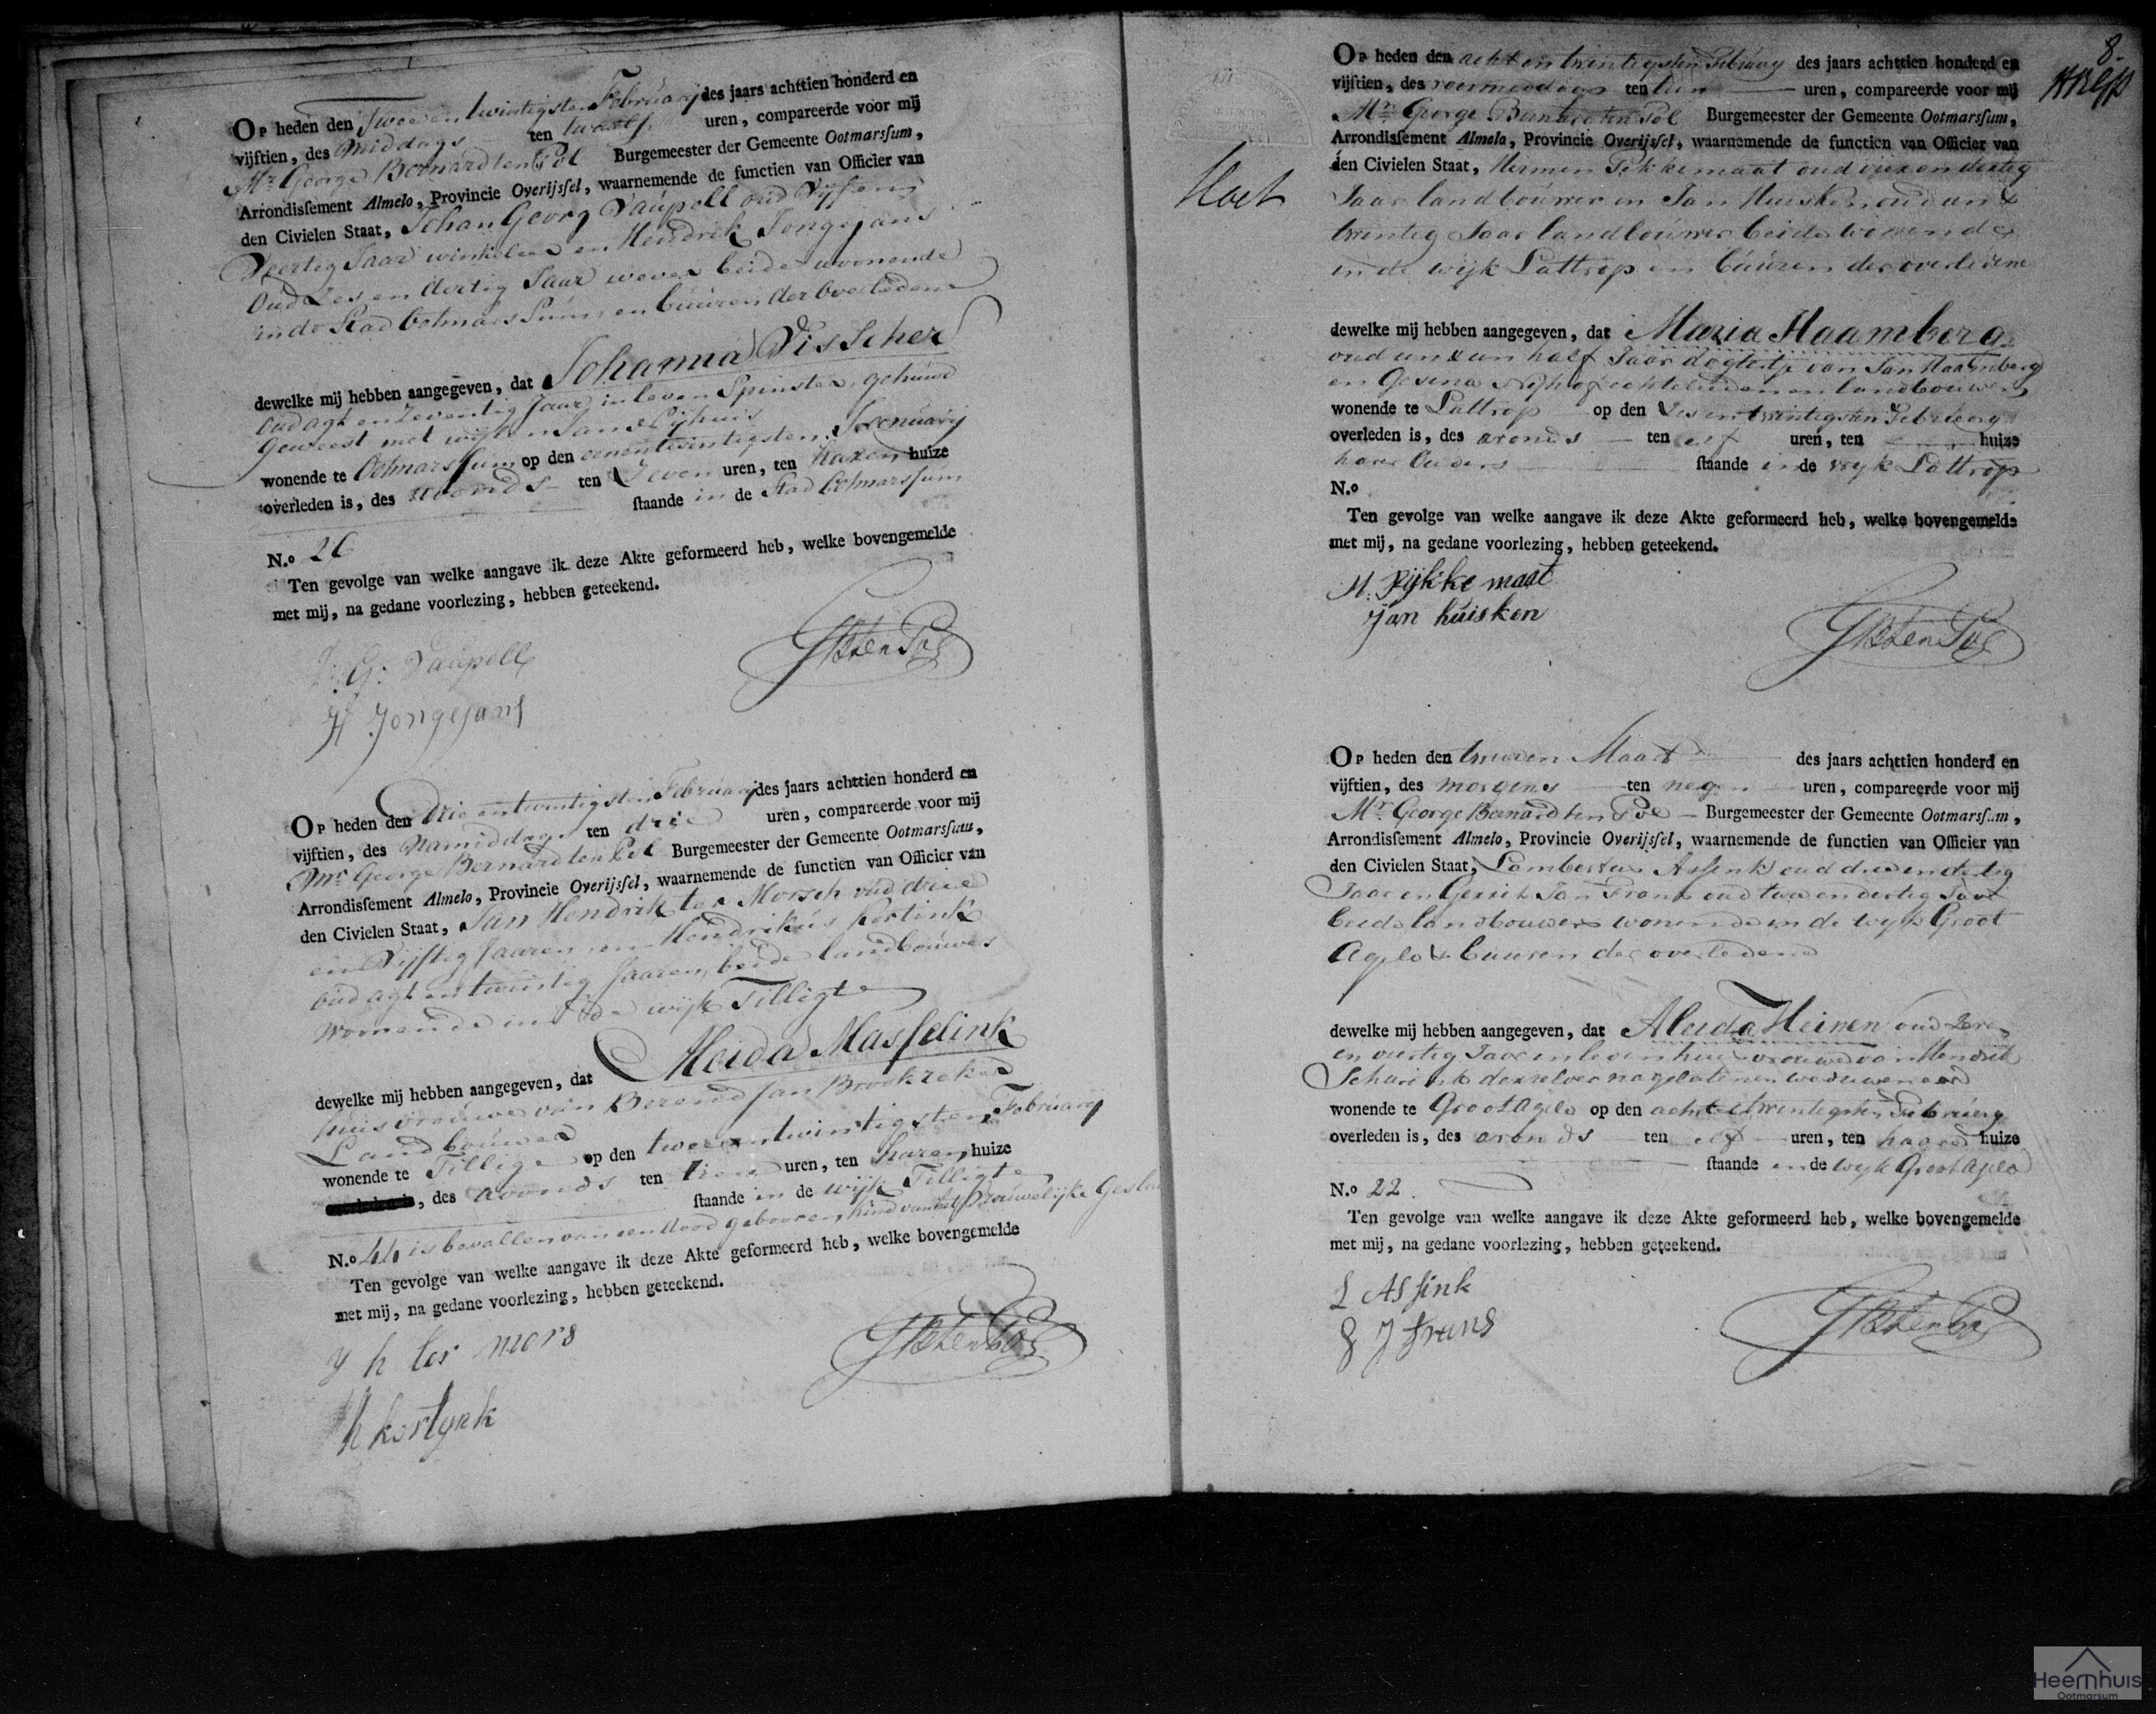 Op heden den Twee en twintigsten Februarij des jaars achttien honderd en
vijftien, des Middags ten twaalf uren, compareerde voor mij
Mr. George Bernard ten Pol Burgemeester der Gemeente Ootmarsſum,
Arrondisſement Almelo, Provincie Overijsſel, waarnemende de functien van Officier van
den Civielen Staat, Johan Georg Vaupell oud Vyf en
Veertig Jaar winkelier en Hendrik Jongejans
Oud Zes en dertig Jaar wever beide woonende
in de Stad Ootmarssum, en buuren der overledene
dewelke mij hebben aangegeven, dat Johanna Visscher
Oud agt en Zeventig Jaar, in leven Spinster, gehuwd
Geweest met wijlen Jan Nijhuis
wonende te Ootmarssum op den eenentwintigsten Februarij
overleden is, des avonds ten Zeven uren, ten haren huize
ſtaande in de Stad Ootmarssum
N.o 26
Ten gevolge van welke aangave ik deze Akte geformeerd heb, welke bovengemelde
met mij, na gedane voorlezing, hebben geteekend.
J: G: Vaupell
H Jongejans
GBtenPol
Op heden den Drie en twintigsten Februarij des jaars achttien honderd en
vijftien, des Namiddags ten drie uren, compareerde voor mij
Mr. George Bernard ten Pol Burgemeester der Gemeente Ootmarsſum,
Arrondisſement Almelo, Provincie Overijsſel, waarnemende de functien van Officier van
den Civielen Staat, Jan Hendrik ter Morsch oud drie
en Vijftig Jaaren, en Hendrikus Kortink
oud agt en twintig Jaaren, beide landbouwers
woonende in de wijk Tilligte
dewelke mij hebben aangegeven, dat Aleida Masselink
huisvrouwe van Berend Jan Brookreker
Landbouwer
wonende te Tilligte op den twee en twintigsten Februarij
, des avonds ten tien uren, ten haren huize
ſtaande in de wijk Tilligte
N.o 44 is bevallen van een dood gebooren kind van het Vrouwelijke Gesla
Ten gevolge van welke aangave ik deze Akte geformeerd heb, welke bovengemelde
met mij, na gedane voorlezing, hebben geteekend.
J h ter mors
H kortynk
GBtenPol
8.
Op heden den acht en twintigsten Februarij des jaars achttien honderd en
vijftien, des voormiddags ten tien uren, compareerde voor mij
Mr. George Bernard ten Pol Burgemeester der Gemeente Ootmarsſum,
Arrondisſement Almelo, Provincie Overijsſel, waarnemende de functien van Officier van
den Civielen Staat, Hermen Pekkemaat oud vier en dertig
Jaar landbouwer en Jan Huisken oud een &
twintig Jaar landbouwer beide wonende
in de wijk Lattrop en buuren der overledene
dewelke mij hebben aangegeven, dat Maria Haamberg
oud een & een half Jaar dogtertje van Jan Haamberg
en Gesina Nijhof echtelieden en landbouwers
wonende te Lattrop op den Zes en twintigsten Februarij
overleden is, des avonds ten elf uren, ten huize
harer Ouders ſtaande in de wijk Lattrop
N.o
Ten gevolge van welke aangave ik deze Akte geformeerd heb, welke bovengemelde
met mij, na gedane voorlezing, hebben geteekend.
H: Pykkemaat
Jan huisken
GBtenPol
Op heden den tweeden Maart des jaars achttien honderd en
vijftien, des morgens ten negen uren, compareerde voor mij
Mr. George Bernard ten Pol Burgemeester der Gemeente Ootmarsſum,
Arrondisſement Almelo, Provincie Overijsſel, waarnemende de functien van Officier van
den Civielen Staat, Lambertus Assink oud drie en dertig
Jaar en Gerrit Jan Frans oud twee en dertig Jaar
beide landbouwers wonende in de wyk Groot
Agelo & buuren der overledene
dewelke mij hebben aangegeven, dat Aleida Heinen oud Zeven
en veertig Jaar in leven huisvrouwe van Hendrik
Schurink deszelver nagelatenen weduwenaar
wonende te Groot Agelo op den acht & twintigsten Februarij
overleden is, des avonds ten elf uren, ten haren huize
ſtaande in de wyk Groot Agelo
N.o 22.
Ten gevolge van welke aangave ik deze Akte geformeerd heb, welke bovengemelde
met mij, na gedane voorlezing, hebben geteekend.
L Assink
G J frans
GBtenPol
Heemhuis
Ootmarsum